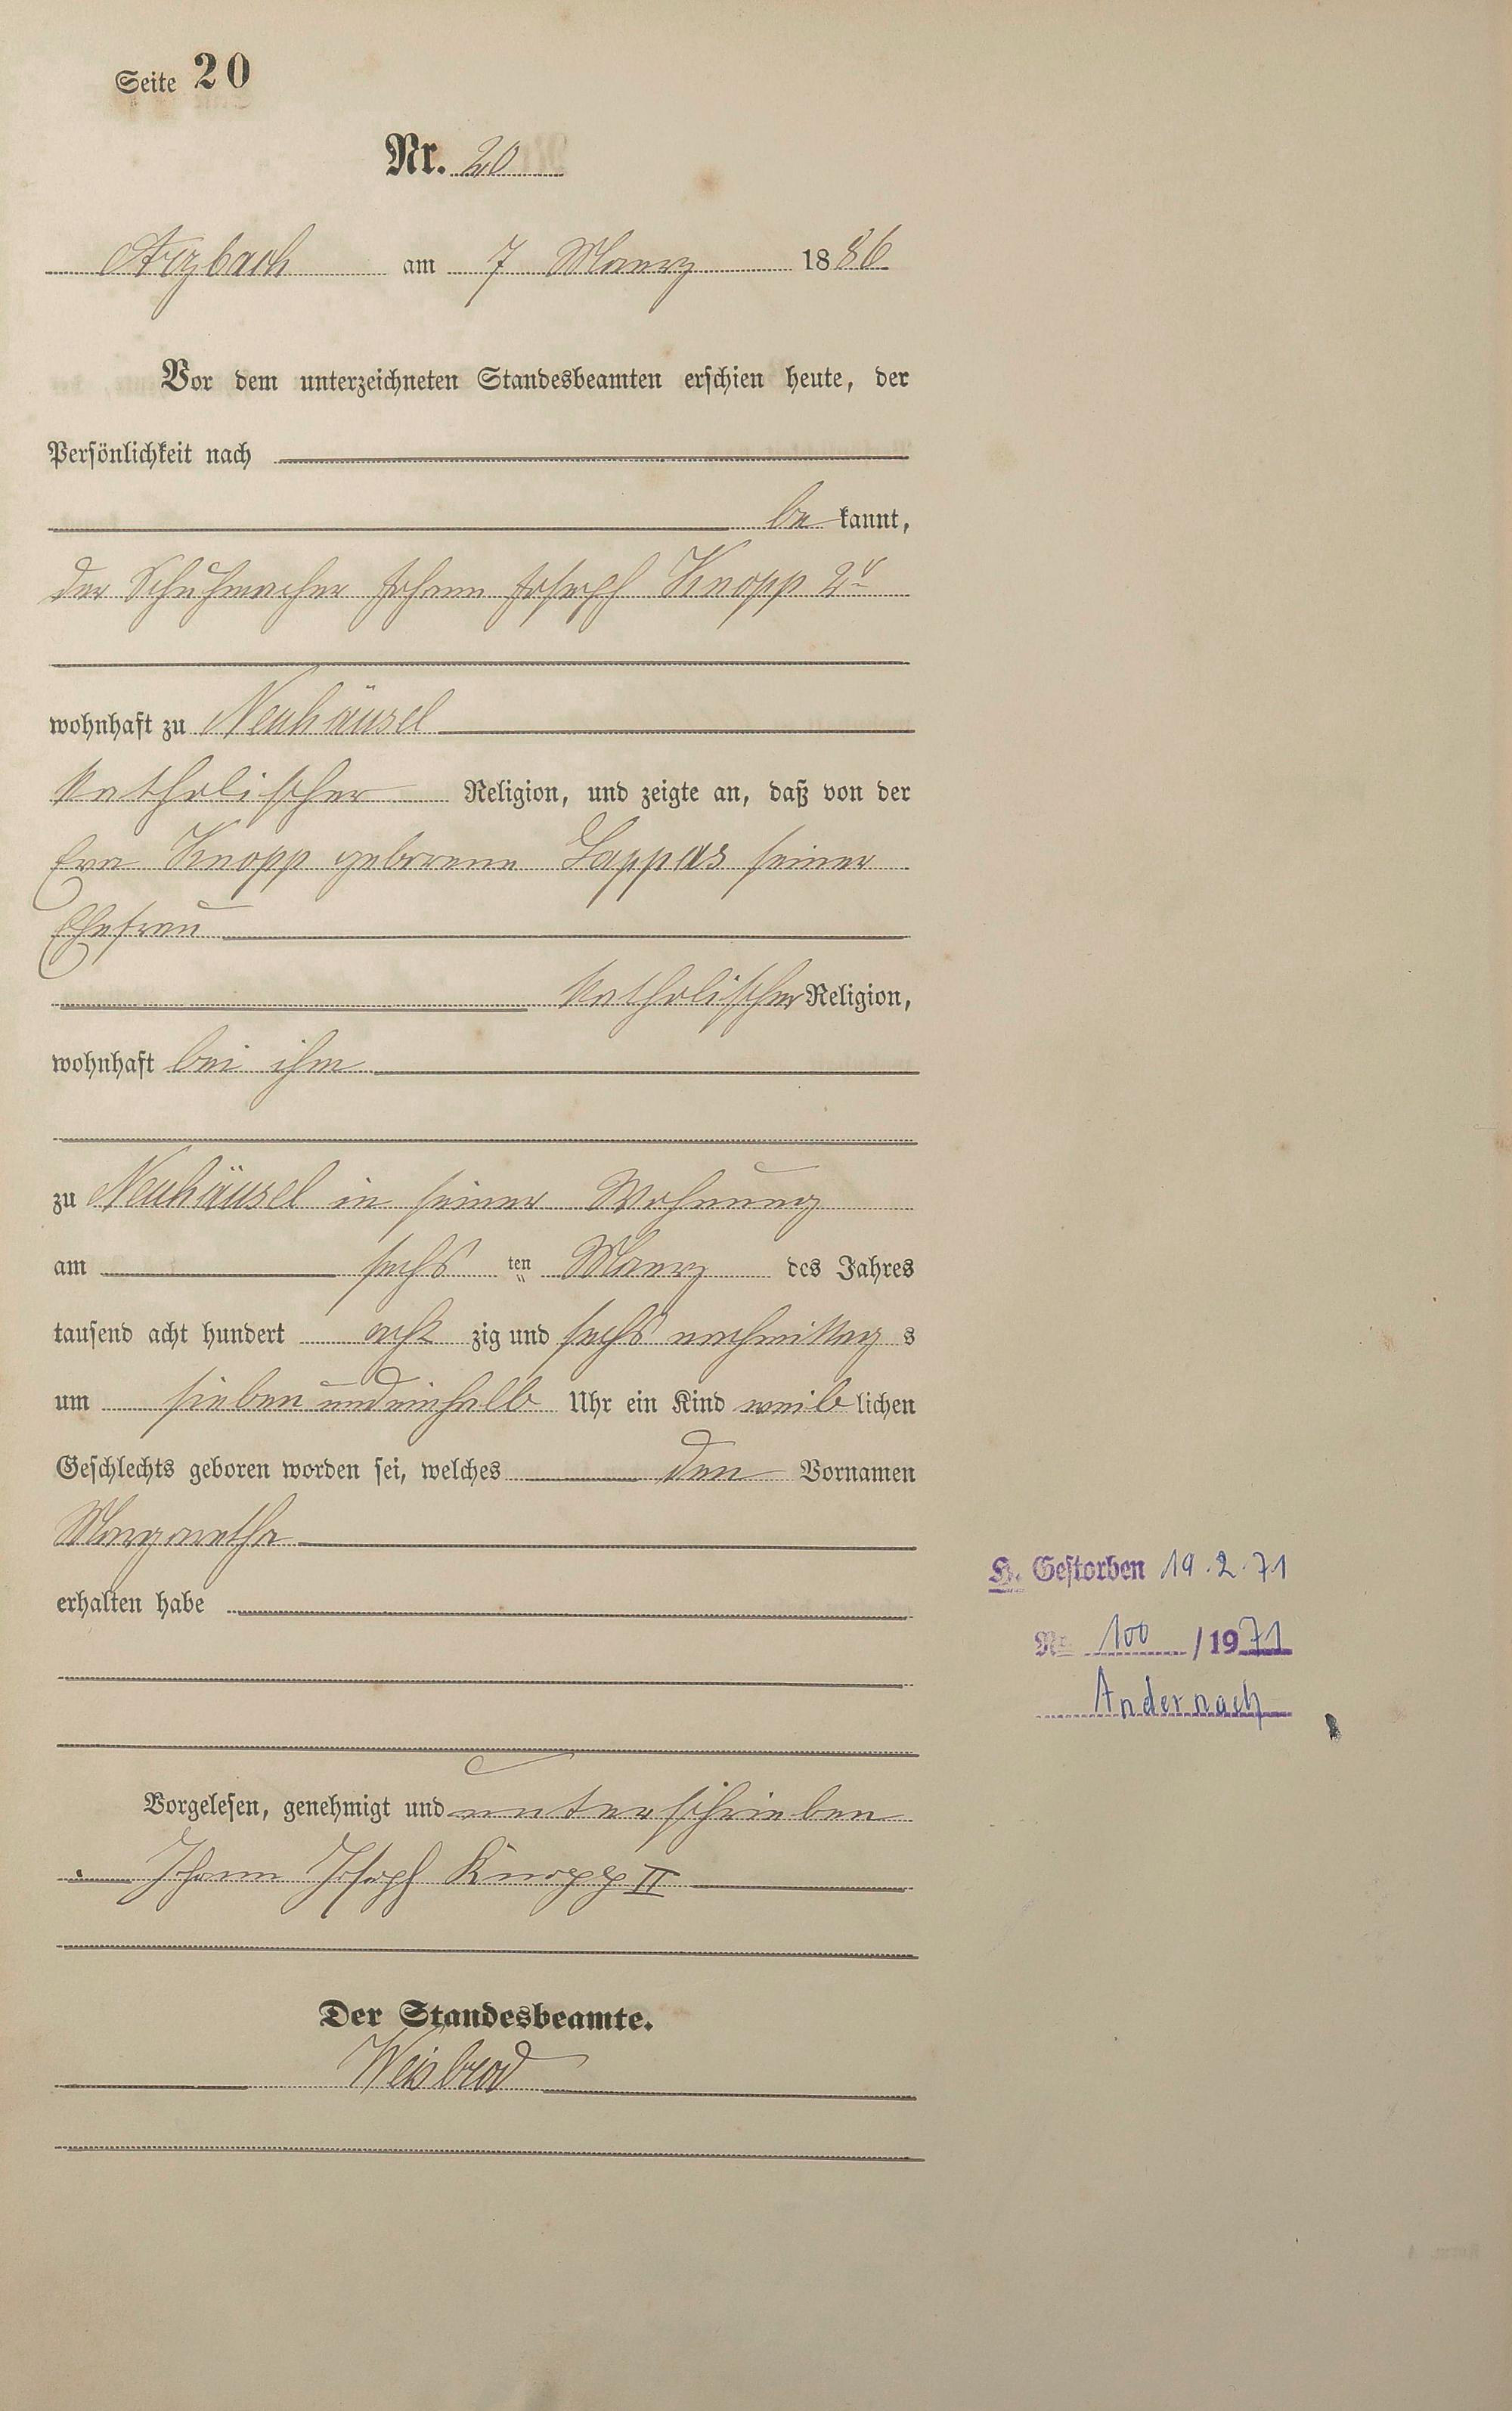 Seite 20
Nr. 20
Arzbach am 7 Maerz 1886
Vor dem unterzeichneten Standesbeamten erschien heute, der
Persönlichkeit nach
be kannt,
der Schuhmacher Johann Joseph Knopp 2r
wohnhaft zu Neuhäusel
katholischer Religion, und zeigte an, daß von der
Eva Knopp geborene Lappas seiner
Ehefrau
katholischer Religion,
wohnhaft bei ihm
zu Neuhäusel in seiner Wohnung
am sechs ten Maerz des Jahres
tausend acht hundert acht zig und sechs nachmittag s
um sieben und einhalb Uhr ein Kind weib lichen
Geschlechts geboren worden sei, welches den Vornamen
Margaretha
erhalten habe
Vorgelesen, genehmigt und unterschrieben
Johann Joseph Knopp II
Der Standesbeamte.
Weisbrod
H. Gestorben 19.2.71
Nr. 100 / 1971
Andernach